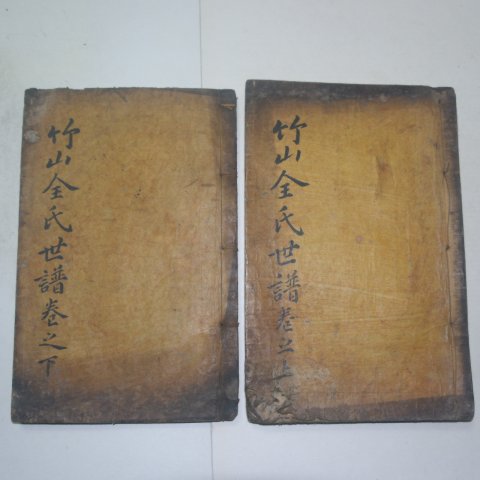 竹山全氏世譜卷之下
竹山全氏世譜卷之上